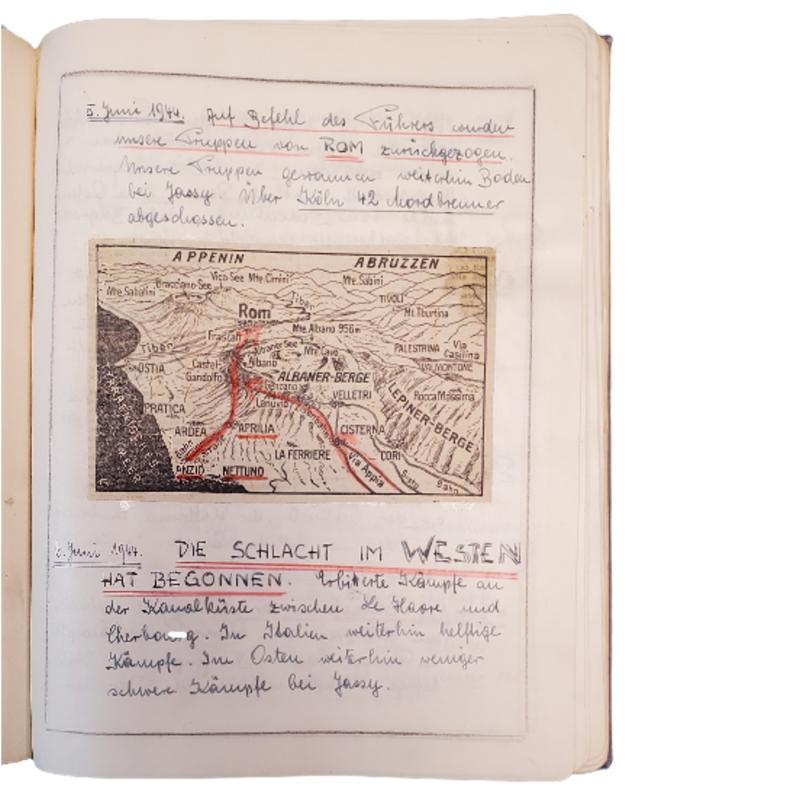 5. Juni 1944. Auf Befehl des Führers wurden
unsere Truppen von ROM zurückgezogen.
Unsere Truppen gewannen weiterhin Boden
bei Jassy. Über Köln 42 Mordbrenner
abgeschossen.
APPENIN ABRUZZEN
Vico-See Mte.Cimini Mte.Sabini
Mte.Sabatini Bracciano-See
TIVOLI
Tiber
Rom Mt.Tiburtina
Frascati Mte.Albano 956m
Tiber Albaner See Mte.Cavo PALESTRINA Via Casilina
OSTIA Castel Gandolfo Albano VALMONTONE
ALBANER-BERGE
Genzano VELLETRI Rocca Massima
PRATICA Lanuvio LEPINER-BERGE
ARDEA APRILIA CISTERNA
LA FERRIERE CORI
ANZIO NETTUNO Via Appia Bahn
6. Juni 1944. DIE SCHLACHT IM WESTEN
HAT BEGONNEN. Erbitterte Kämpfe an
der Kanalküste zwischen Le Havre und
Cherbourg. In Italien weiterhin heftige
Kämpfe. Im Osten weiterhin weniger
schwere Kämpfe bei Jassy.